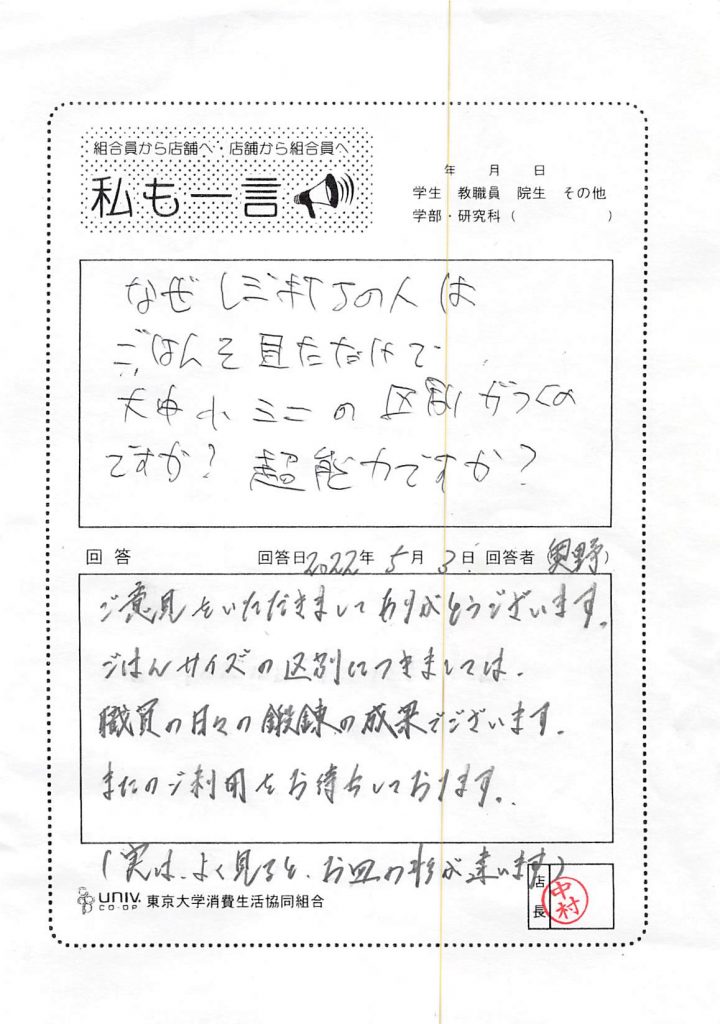 組合員から店舗へ・店舗から組合員へ
私も一言
年 月 日
学生 教職員 院生 その他
学部・研究科( )
なぜレジ打ちの人は
ごはんを見ただけで
大中小ミニの区別がつくの
ですか？超能力ですか？
回答 回答日2022年5月3日 回答者(奥野)
ご意見をいただきましてありがとうございます。
ごはんサイズの区別につきましては、
職員の日々の鍛錬の成果でございます。
またのご利用をお待ちしております。
(実は、よく見ると、お皿の形が違います)
univ. CO-OP 東京大学消費生活協同組合
店長 中村